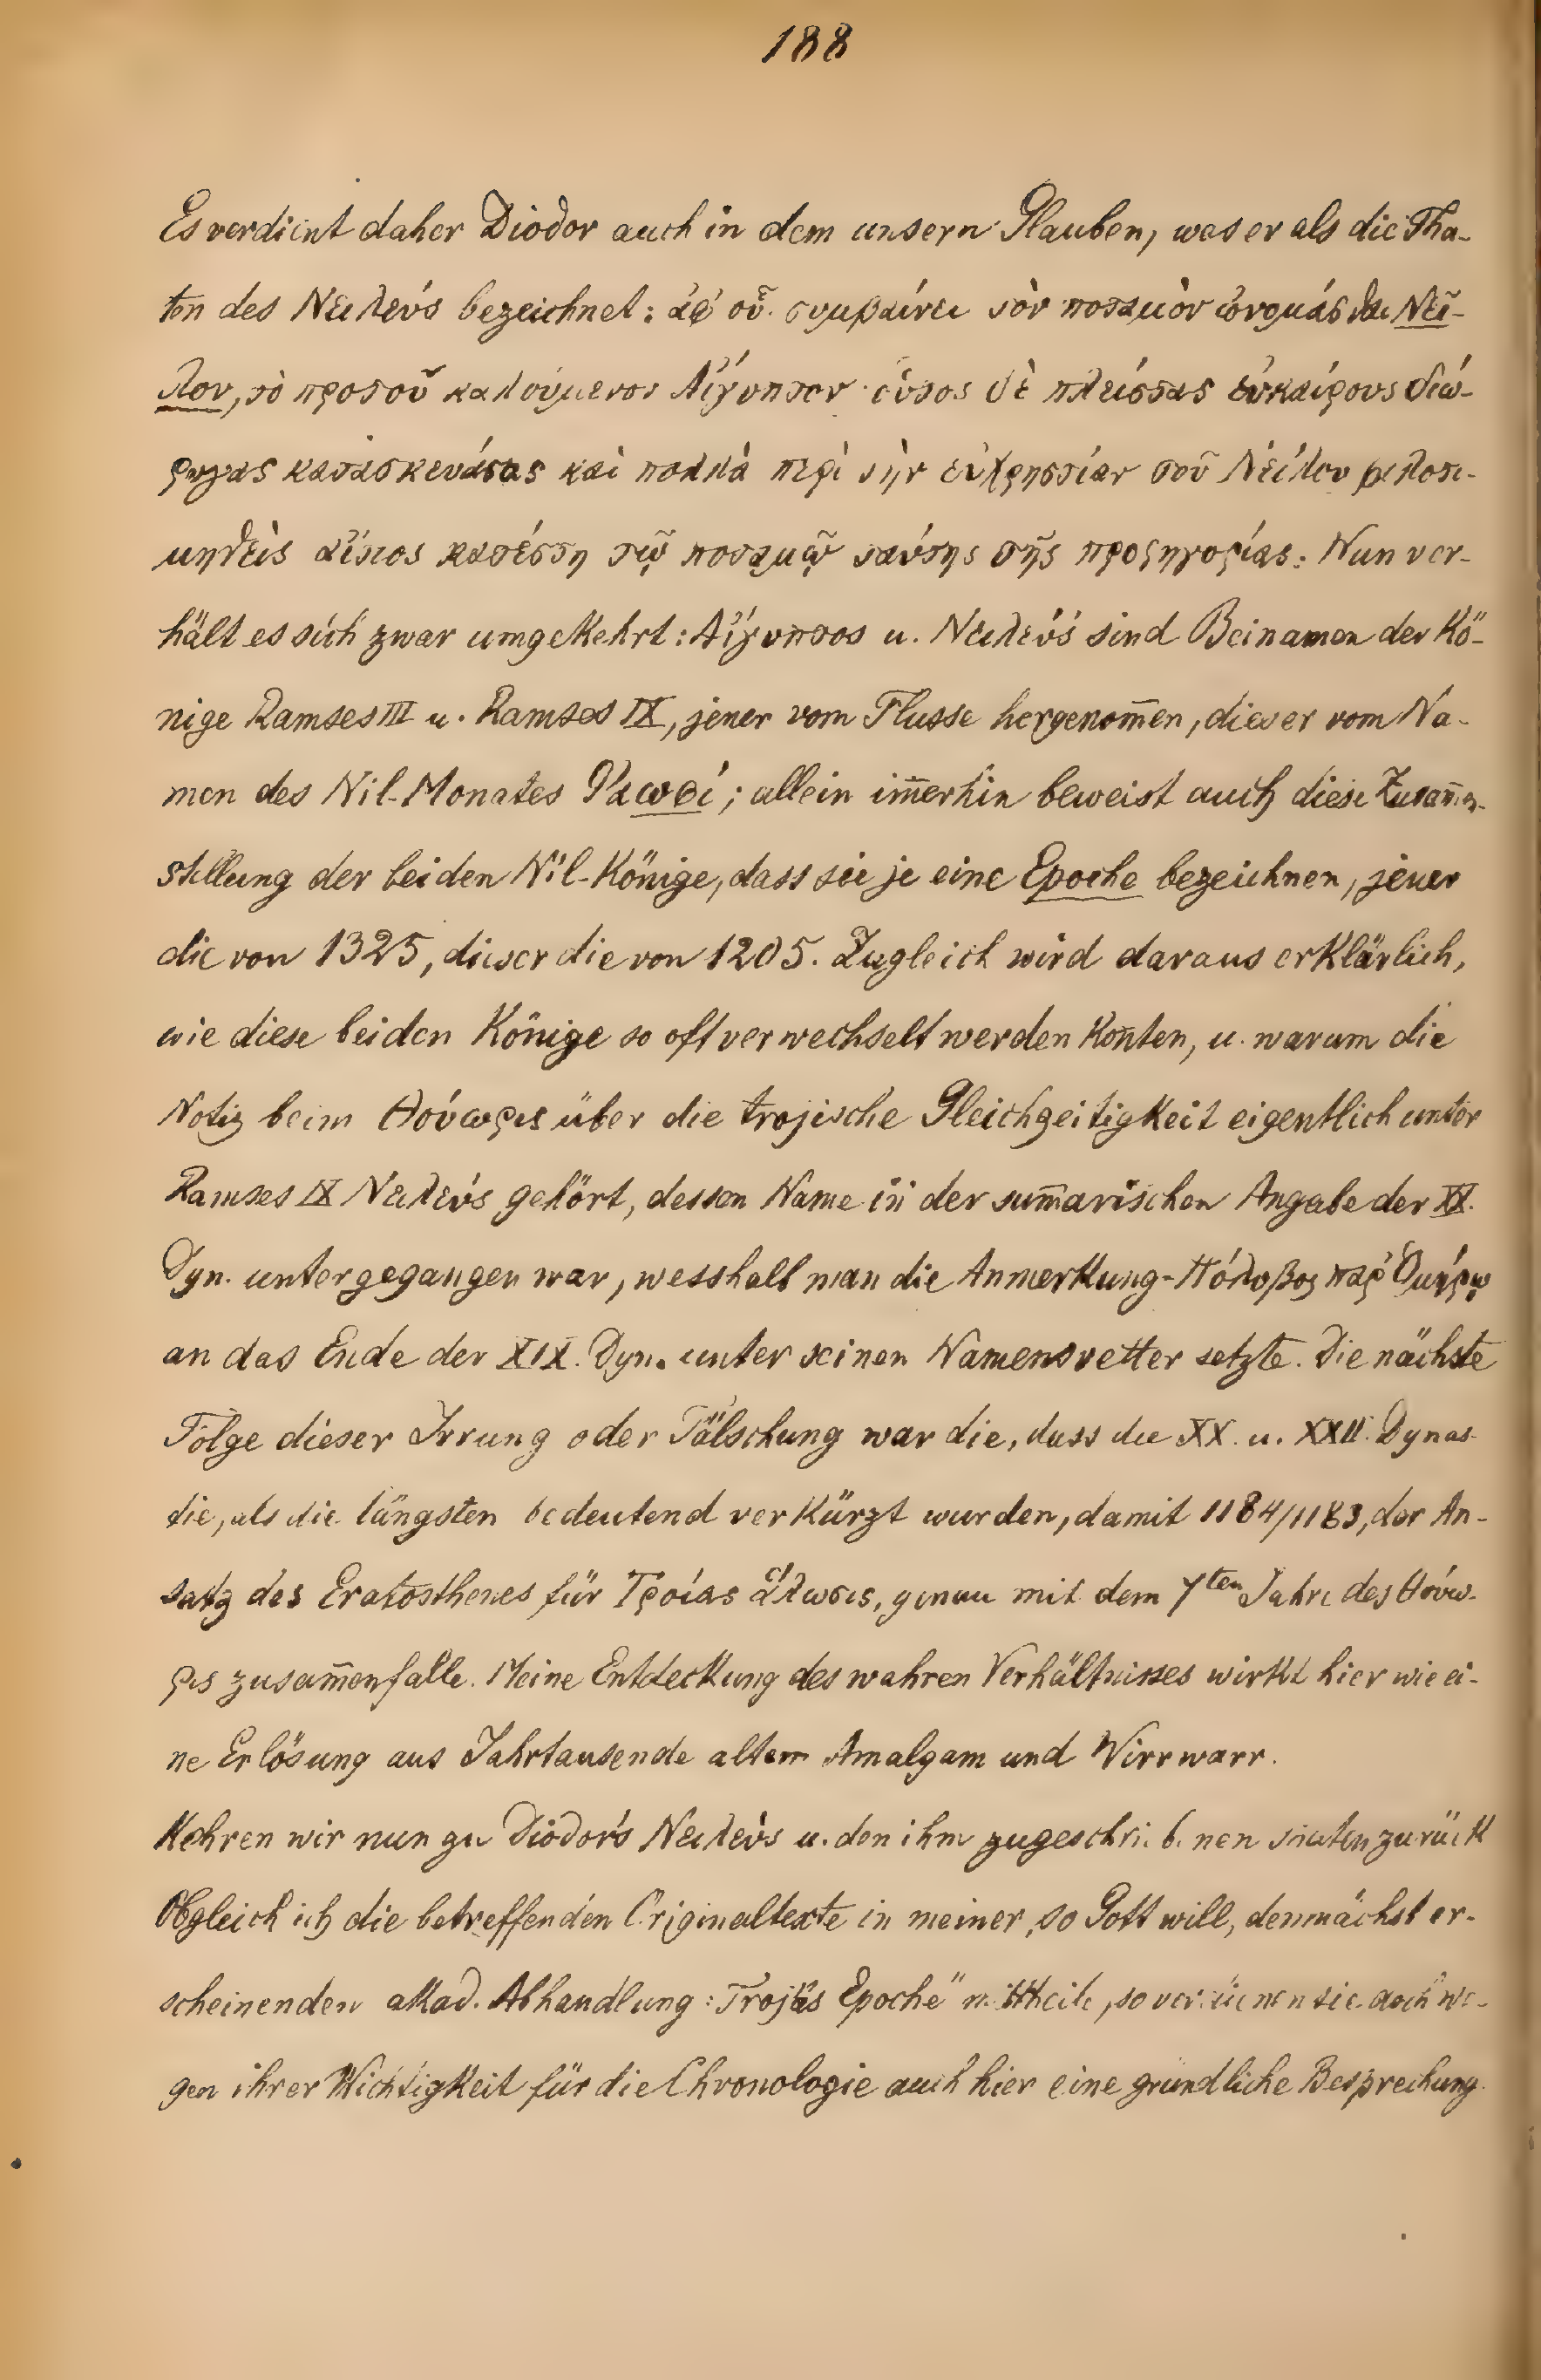 188
Es verdient daher Diodor auch in dem unsern Glauben, was er als die Tha-
ten des Νειλεύς bezeichnet: ἀφ' οὗ συμβαίνει τὸν ποταμὸν ὀνομάσθαι Νεῖ-
λον, τὸ προτοῦ καλούμενον Αἴγυπτον· οὗτος δὲ πλείστας εὐκαίρους διώ-
ρυχας κατασκευάσας καὶ πολλὰ περὶ τὴν εὐχρηστίαν τοῦ Νείλου φιλοτι-
μηθεὶς αἴτιος κατέστη τῷ ποταμῷ ταύτης τῆς προςηγορίας. Nun ver-
hält es sich zwar umgekehrt: Αἴγυπτος u. Νειλεύς sind Beinamen der Kö-
nige Ramses III u. Ramses IX, jener vom Flusse hergenom̅en, dieser vom Na-
men des Nil-Monates Παωφί; allein im̅erhin beweist auch diese Zusam̅en-
stellung der beiden Nil-Könige, dass sie je eine Epoche bezeichnen, jener
die von 1325, dieser die von 1205. Zugleich wird daraus erklärlich,
wie diese beiden Könige so oft verwechselt werden kon̅ten, u. warum die
Notiz beim Θούωρις über die trojische Gleichzeitigkeit eigentlich unter
Ramses IX Νειλεύς gehört, dessen Name in der sum̅arischen Angabe der XX.
Dyn. untergegangen war, wesshalb man die Anmerkung - Πόλυβος παρ' Ὁμήρῳ
an das Ende der XIX. Dyn. unter seinen Namensvetter setzte. Die nächste
Folge dieser Irrung oder Fälschung war die, dass die XX. u. XXII. Dynas-
tie, als die längsten bedeutend verkürzt wurden, damit 1184/1183, der An-
satz des Eratosthenes für Τροίας ἅλωσις, genau mit dem 7ten Jahre des Θούω-
ρις zusam̅enfalle. Meine Entdeckung des wahren Verhältnisses wirkt hier wie ei-
ne Erlösung aus Jahrtausende altem Amalgam und Wirrwarr.
Kehren wir nun zu Diodor's Νειλεὺς u. den ihm zugeschriebenen zurück
Obgleich ich die betreffenden Originaltexte in meiner, so Gott will, demnächst er-
scheinenden akad. Abhandlung: Troja's Epoche" mittheile, so verdienen sie doch we-
gen ihrer Wichtigkeit für die Chronologie auch hier eine gründliche Besprechung